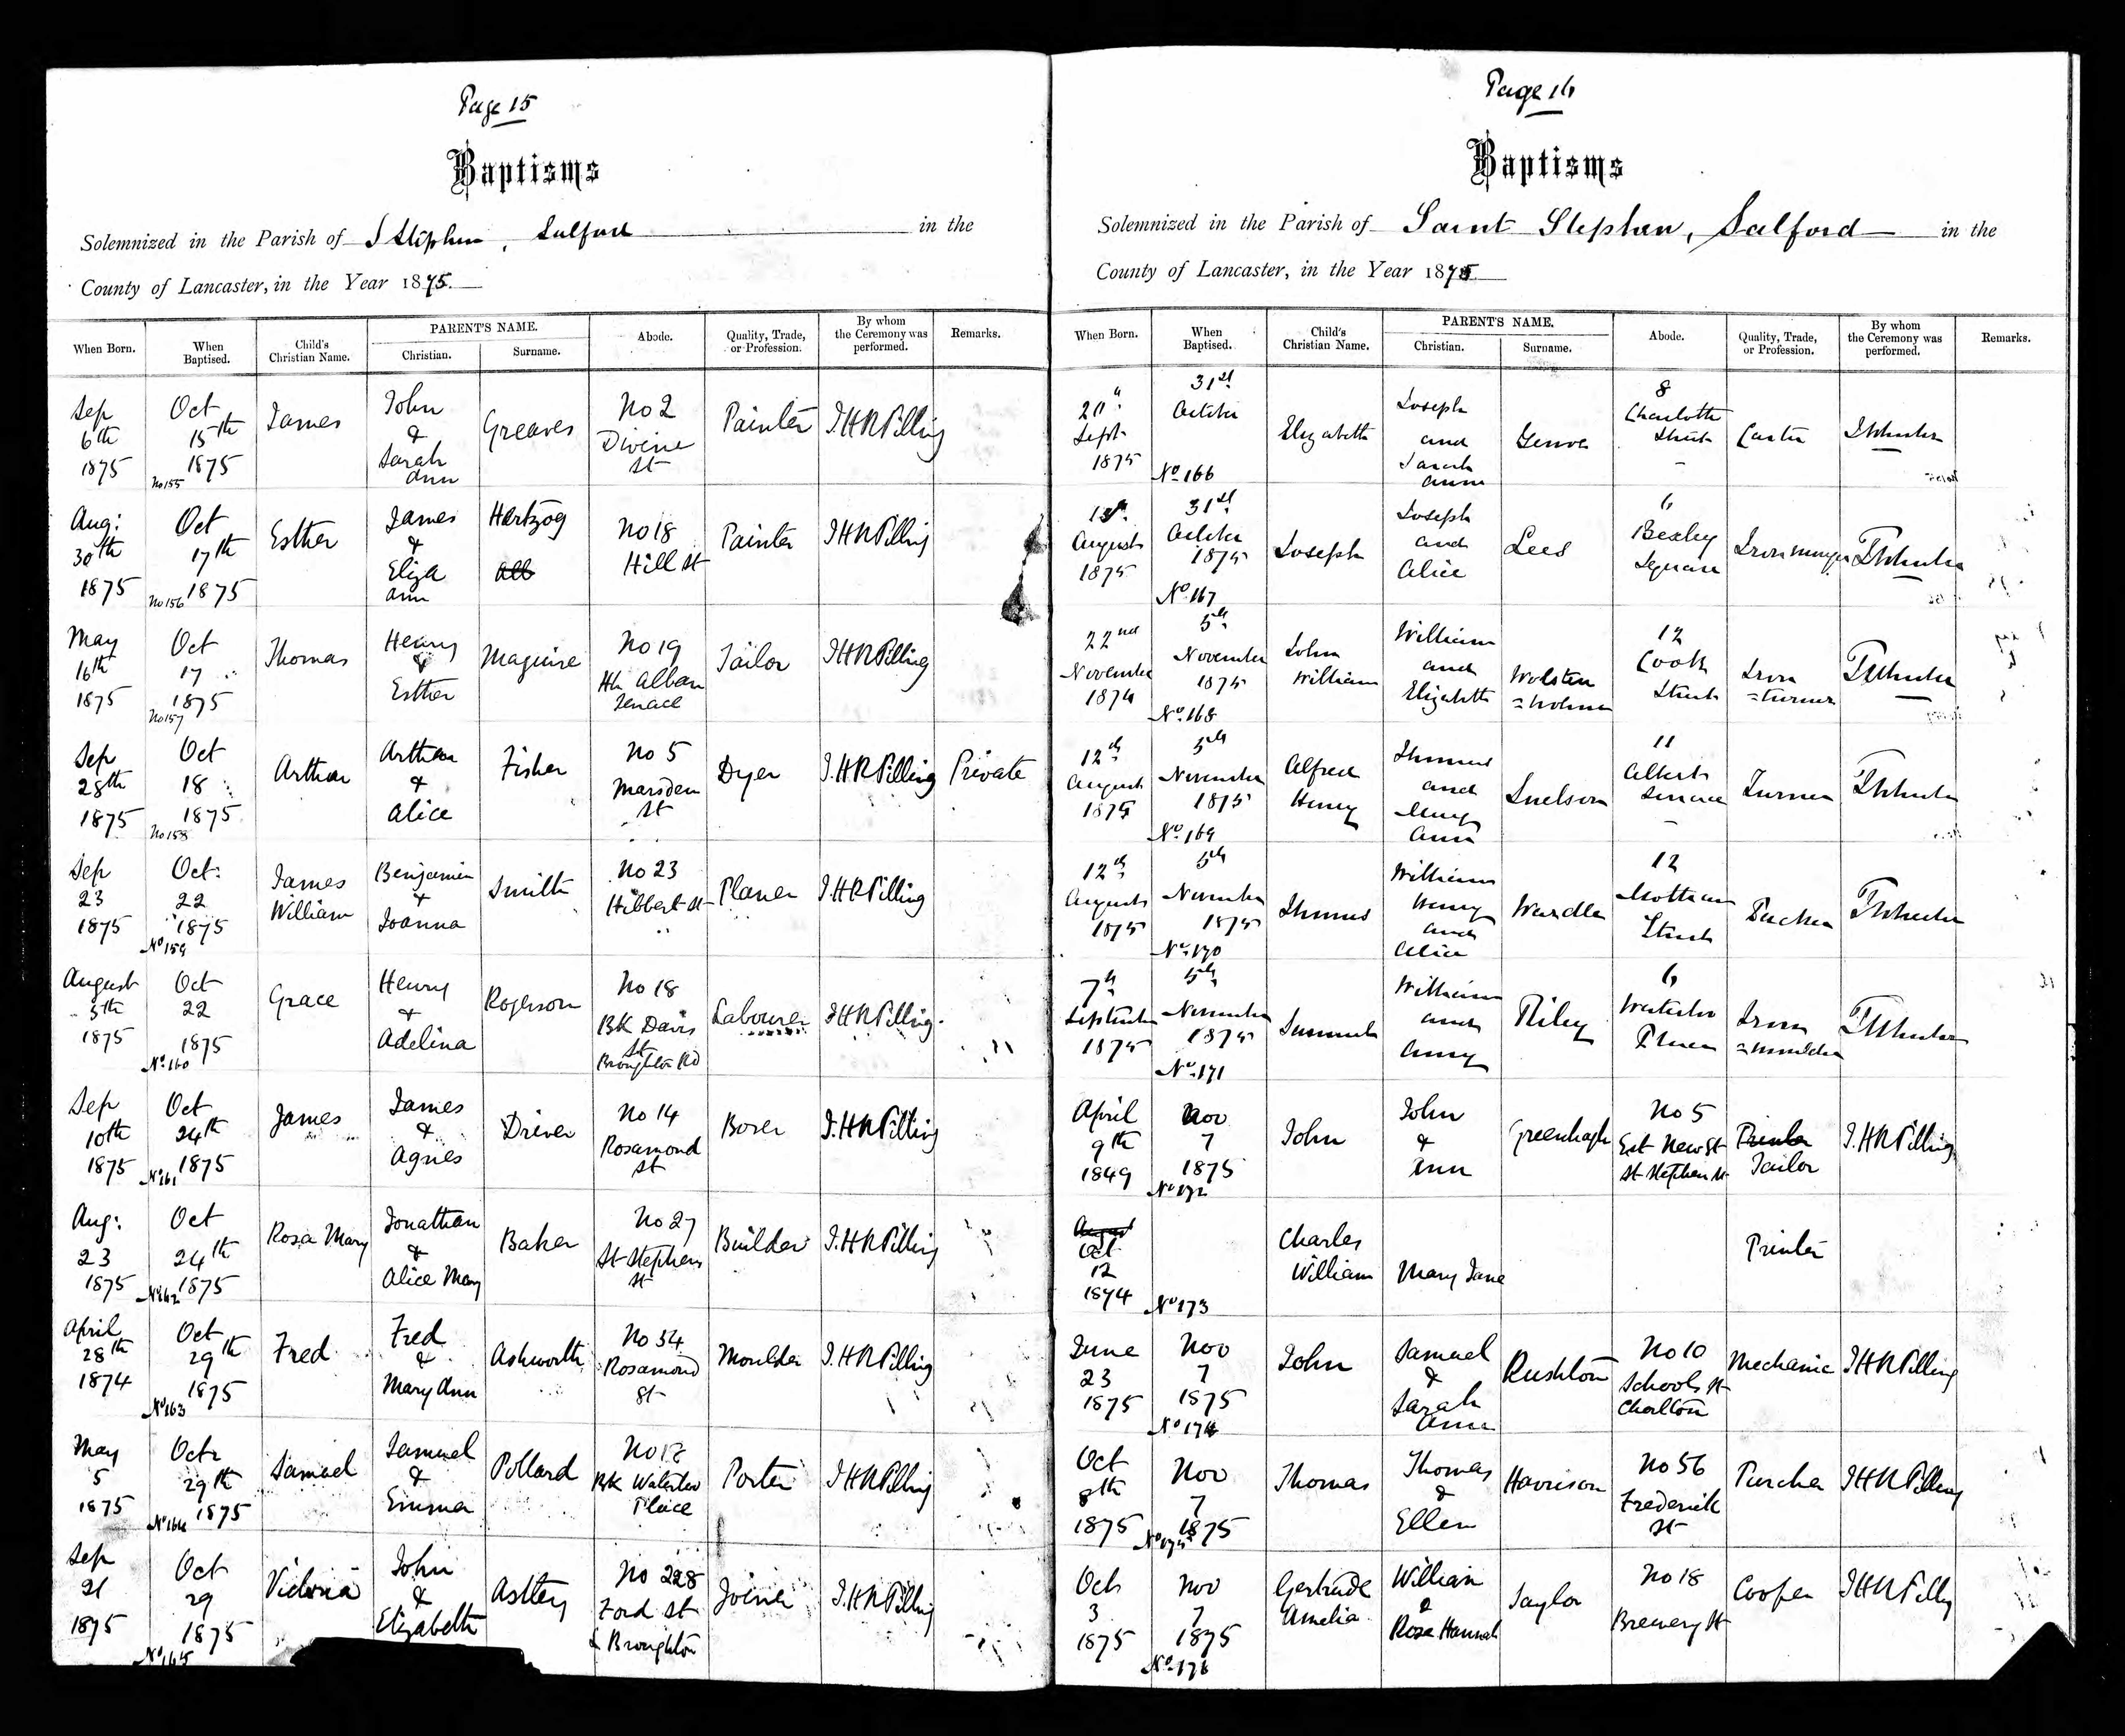 Page 15
Baptisms
Solemnized in the Parish of S Stephen, Salford in the
County of Lancaster, in the Year 1875.
When Born. When Baptised. Child's Christian Name. PARENT'S NAME. Christian. Surname. Abode. Quality, Trade, or Profession. By whom the Ceremony was performed. Remarks.
Sep 6th 1875 Oct 15th 1875 No 155 James John & Sarah Ann Greaves No 2 Divine St Painter J.H.R Pilling
Aug: 30th 1875 Oct 17th 1875 No 156 Esther James & Eliza Ann Hertzog No 18 Hill St Painter J H R Pilling
May 16th 1875 Oct 17 1875 No 157 Thomas Henry & Esther Maguire No 19 Alban Terrace Tailor J H R Pilling
Sep 28th 1875 Oct 18 1875 No 158 Arthur Arthur & Alice Fisher No 5 Marsden St Dyer J.H.R Pilling Private
Sep 23 1875 Oct: 22 1875 No 159 James William Benjamin & Joanna Smith No 23 Hibbert St Planer J.H.R Pilling
August 5th 1875 Oct 22 1875 No 160 Grace Henry & Adelina Rogerson No 18 BK Davis St Broughton Rd Labourer J H R Pilling
Sep 10th 1875 Oct 24th 1875 No 161 James James & Agnes Driver No 14 Rosamond St Borer J.H.R Pilling
Aug: 23 1875 Oct 24th 1875 No 162 Rosa Mary Jonathan & Alice Mary Baker No 27 St Stephens St Builder J.H.R Pilling
April 28th 1874 Oct 29th 1875 No 163 Fred Fred & Mary Ann Ashworth No 34 Rosamond St Moulder J.H.R Pilling
May 5 1875 Oct 29th 1875 No 164 Samuel Samuel & Emma Pollard BK Waterloo Place Porter J H R Pilling
Sep 21 1875 Oct 29 1875 No 165 Victoria John & Elizabeth Astley No 228 Ford St L Broughton Joiner J.H.R Pilling
Page 16
Baptisms
Solemnized in the Parish of Saint Stephen, Salford in the
County of Lancaster, in the Year 1875
When Born. When Baptised. Child's Christian Name. PARENT'S NAME. Christian. Surname. Abode. Quality, Trade, or Profession. By whom the Ceremony was performed. Remarks.
Sept 1875 31st October No. 166 Elizabeth Joseph and Sarah Anne 8 Charlotte Street Carter
August 1875 31st October 1875 No. 167 Joseph Joseph and Alice Lees 6 Bexley Square Ironmonger
22nd November 1874 5th November 1875 No. 168 John William William and Elizabeth Wolsten=holme 12 Cook Street Iron=turner
12th August 1875 5th November 1875 No. 169 Alfred Henry Thomas and Mary Ann Snelson 11 Albert Terrace Turner
12th August 1875 5th November 1875 No. 170 Thomas William Henry and Alice Wardle 12 Mottram Street Packer
7th September 1875 5th November 1875 No. 171 Samuel William and Amy Riley 6 Waterloo Place Iron=moulder
April 9th 1849 Nov 7 1875 No 172 John John & Ann Greenhalgh No 5 New St St Stephen St Printer Tailor J.H.R Pilling
August Oct 12 1874 No 173 Charles William Mary Jane Printer
June 23 1875 Nov 7 1875 No 174 John Samuel & Sarah Ann Rushton No 10 School St Charlton Mechanic J H R Pilling
Oct 8th 1875 Nov 7 1875 No 175 Thomas Thomas & Ellen Harrison No 56 Frederick St J H R Pilling
Oct 3 1875 Nov 7 1875 No 176 Gertrude Amelia William & Rose Hannah Taylor No 18 Brewery St Cooper J H R Pilling